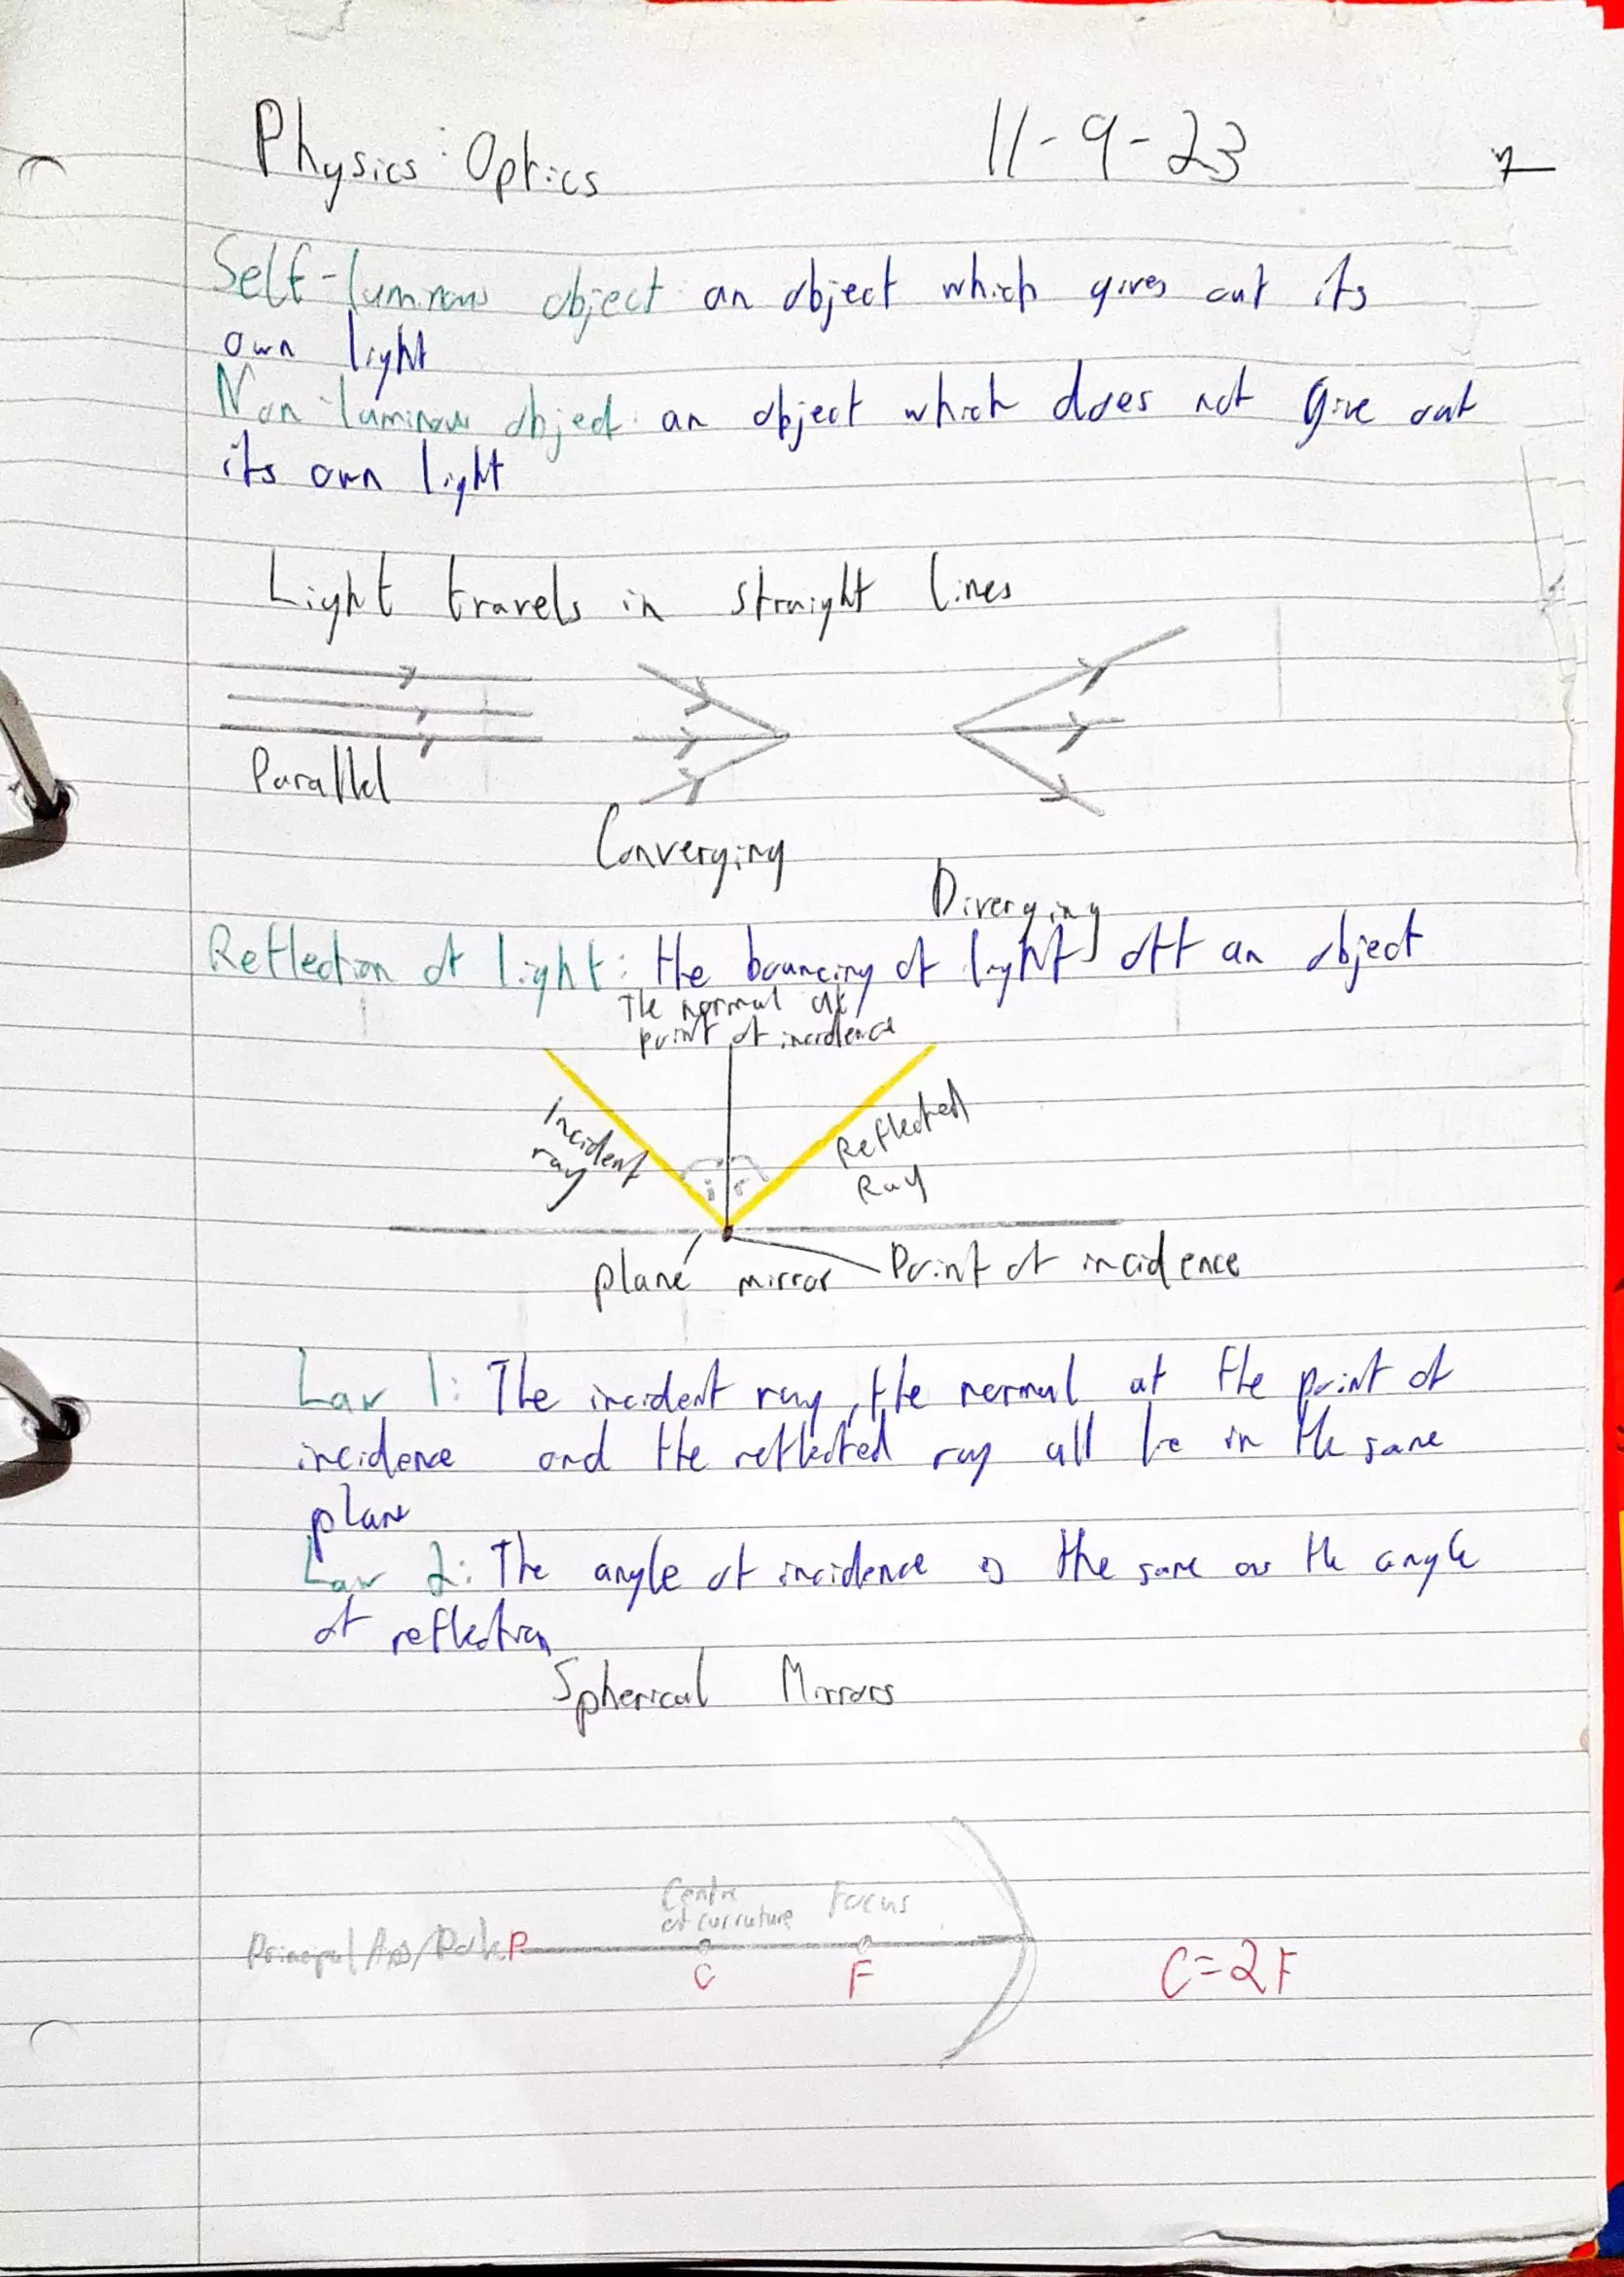 Physics: Optics 11-9-23
Self-luminous object: an object which gives out its
own light
Non-luminous object: an object which does not give out
its own light
Light travels in straight lines
Parallel
Converging
Diverging
Reflection of light: the bouncing of light off an object
The normal at
point of incidence
Incident
ray
Reflected
Ray
i r
plane mirror Point of incidence
Law 1: The incident ray, the normal at the point of
incidence and the reflected ray all lie in the same
plane
Law 2: The angle of incidence is the same as the angle
of reflection
Spherical Mirrors
Centre
of curvature Focus
Principal Axis/ P
C F C=2F